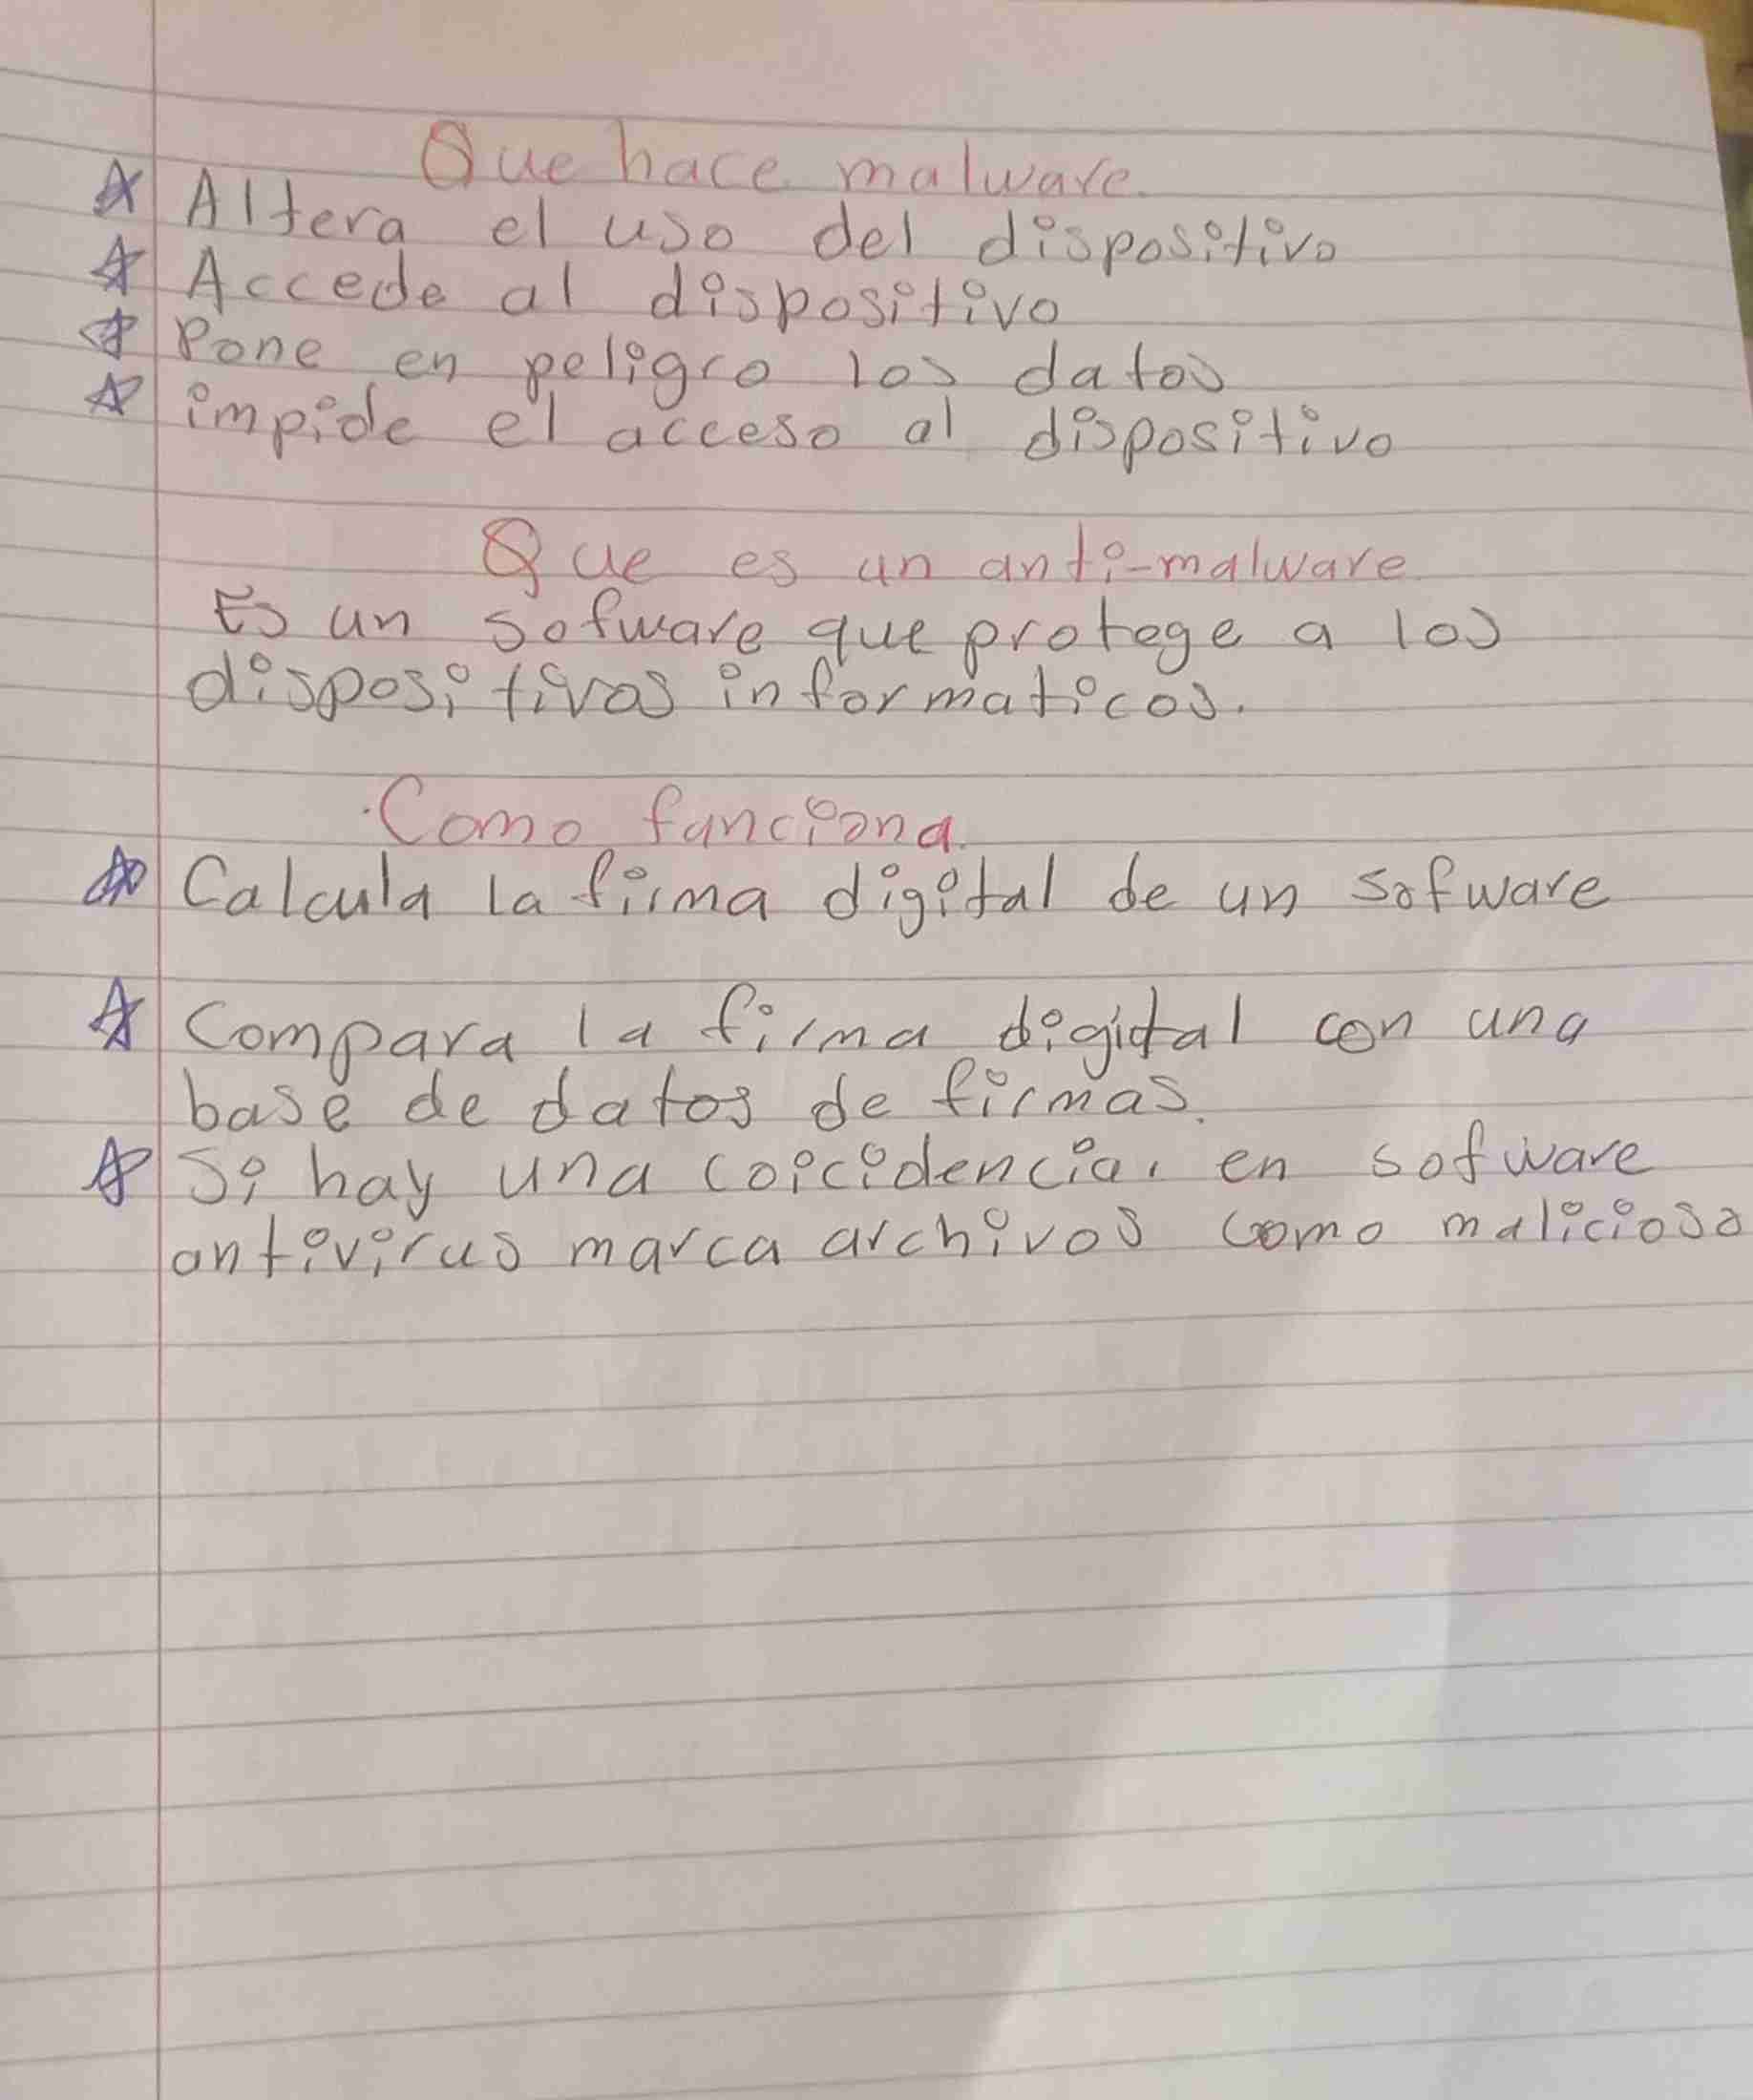 Que hace malware.
Altera el uso del dispositivo
Accede al dispositivo
Pone en peligro los datos
impide el acceso al dispositivo
Que es un anti-malware
Es un sofware que protege a los
dispositivos informaticos.
Como funciona.
Calcula la firma digital de un sofware
Compara la firma digital con una
base de datos de firmas.
Si hay una coicidencia, en sofware
antivirus marca archivos como malicioso